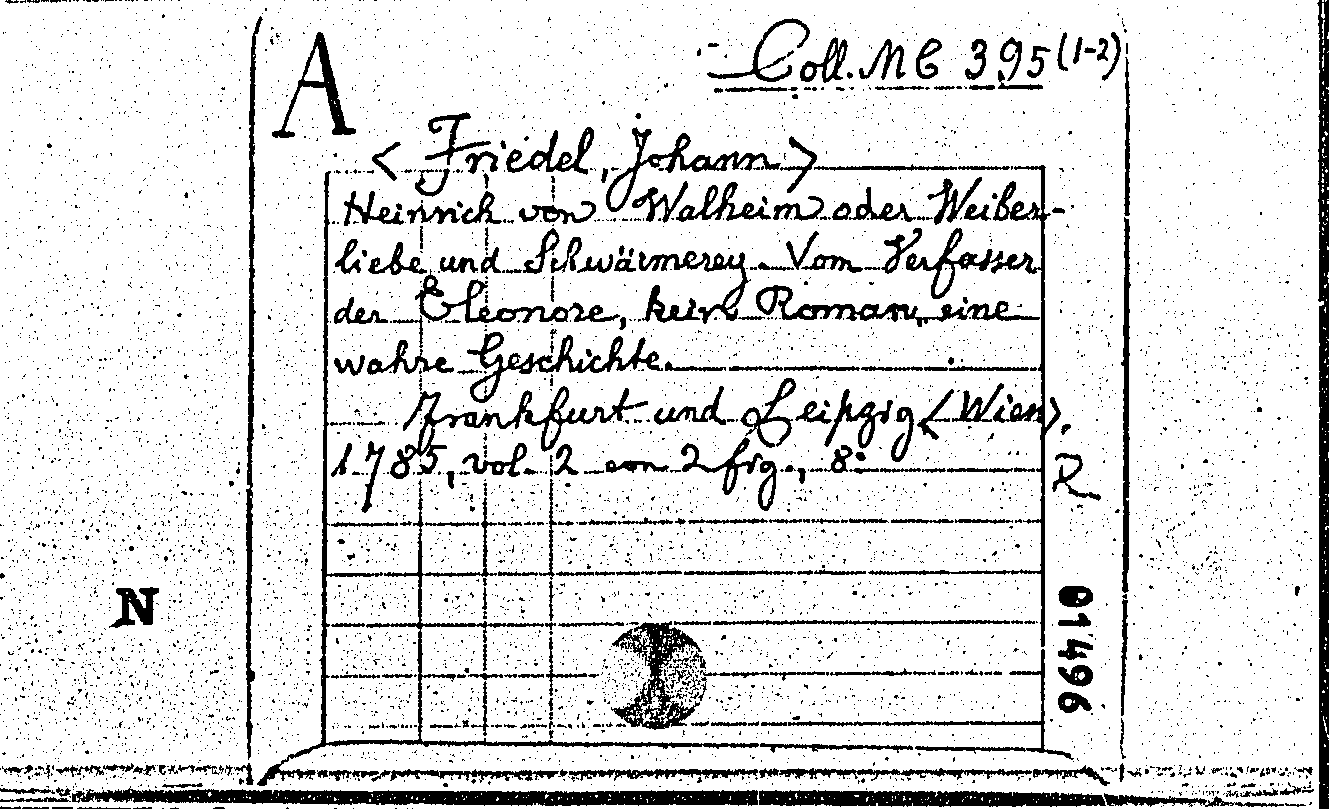 A
Coll. MC 395 (1-2)
< Friedel, Johann >
Heinrich von Walheim oder Weiber-
liebe und Schwärmerey. Vom Verfasser
der Eleonore, kein Roman, eine
wahre Geschichte.
Frankfurt und Leipzig < Wien >.
1785, vol. 2 con 2 frg., 8:
R
N
01496